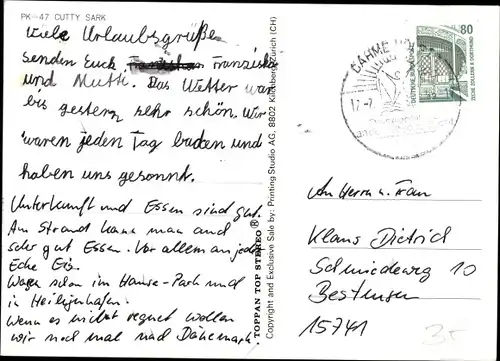 PK-47 CUTTY SARK
Viele Urlaubsgrüße
senden Euch Franziska
und Mutti. Das Wetter war
bis gestern sehr schön. Wir
waren jeden Tag baden und
haben uns gesonnt.
Unterkunft und Essen sind gut.
Am Strand kann man auch
sehr gut Essen. Vor allem an jeder
Ecke Eis.
Waren schon im Hansa-Park und
in Heiligenhafen.
Wenn es nicht regnet wollen
wir noch mal nach Dänemark.
TOPPAN TOP STEREO ®
Copyright and Exclusive Sale by: Printing Studio AG, 8802 Kilchberg/Zürich (CH)
DAHME
17.-7
80
DEUTSCHE BUNDESPOST
ZECHE ZOLLERN II DORTMUND
An Herrn u. Frau
Klaus Dietrich
Schmiedeweg 10
Bestensee
15741